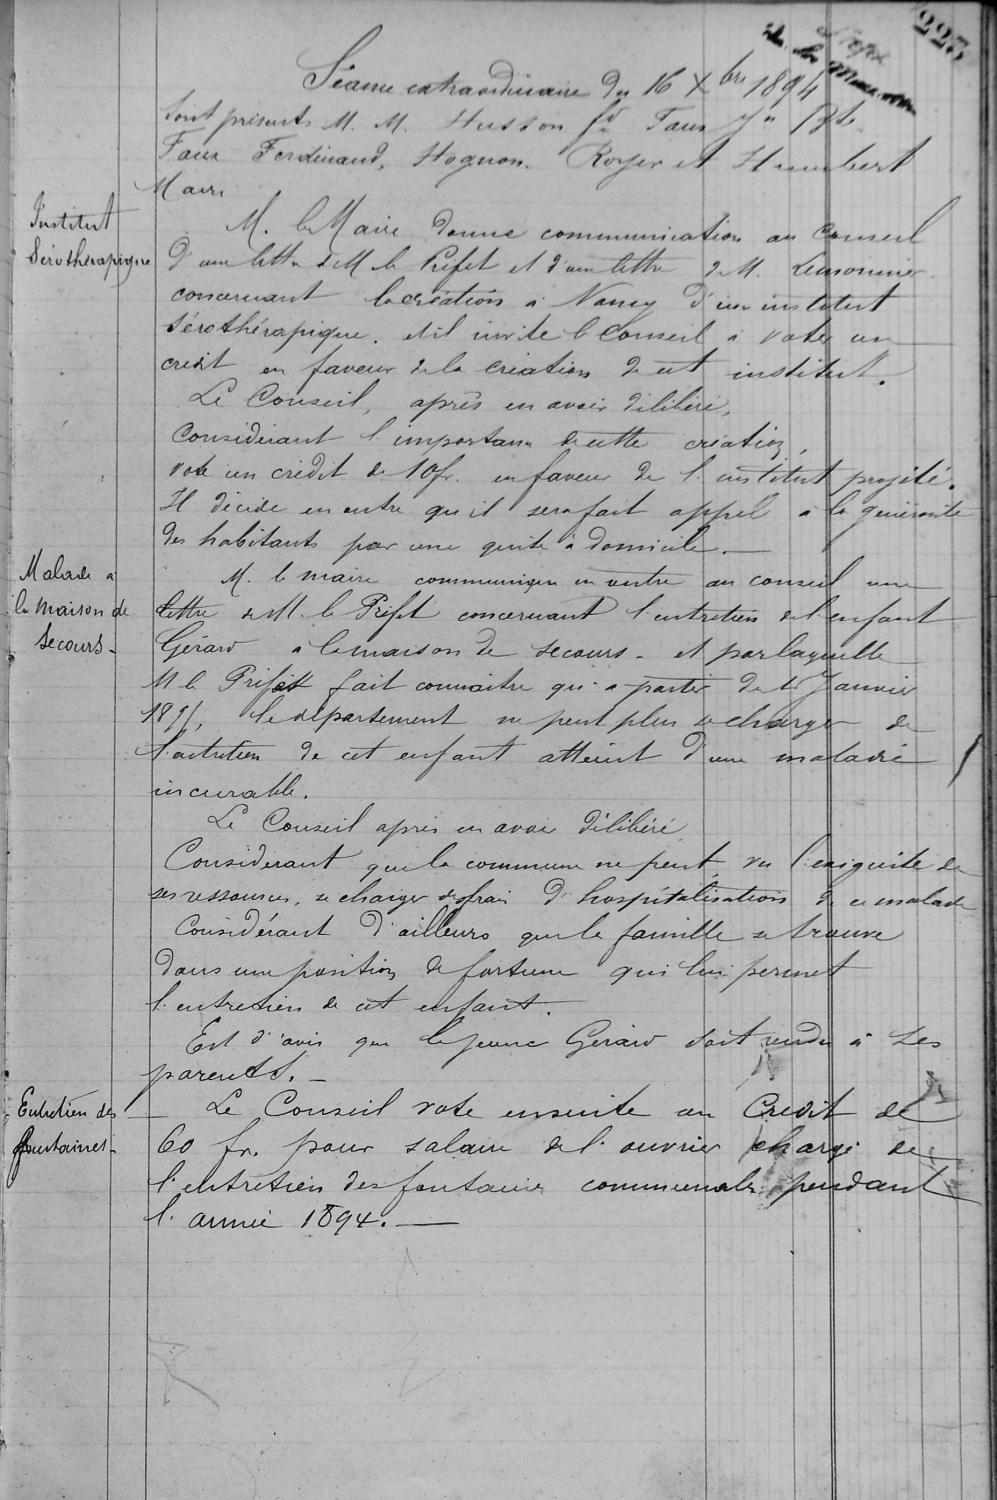 223
Séance extraordinaire du 16 Xbre 1894
Sont présents M. M. Husson fd Faux Jn Bte
Faux Ferdinand, Hognon. Royer et Humbert
Maire
Institut
Sérothérapique
M. le Maire donne communication au conseil
d'une lettre de M le Préfet et d'une lettre de M.
concernant la création à Nancy d'un institut
sérothérapique. et il invite le Conseil à voter un
credit en faveur de la création de cet institut.
Le Conseil, après en avoir délibéré,
Considérant l'importance de cette création,
vote un crédit de 10 fr. en faveur de l'institut projeté.
Il décide en outre qu'il sera fait appel à la générosité
des habitants par une quête à domicile. —
Malade à
la maison de
secours -
M. le maire communique en outre au conseil une
lettre de M. le Préfet concernant l'entretien de l'enfant
Gérard à la maison de secours - et par laquelle
M le Préfet fait connaitre qu'à partir du 1er Janvier
1895, le département ne peut plus se charger de
l'entretien de cet enfant atteint d'une maladie
incurable.
Le Conseil après en avoir délibéré
Considérant que la commune ne peut, vu l'exiguité de
ses ressources, se charger des frais d'hospitalisation de ce malade
Considérant d'ailleurs que la famille se trouve
dans une position de fortune qui lui permet
l'entretien de cet enfant.
Est d'avis que le jeune Gérard soit rendu à ses
parents. -
Entretien des
fontaines -
— Le Conseil vote ensuite un Crédit de
60 fr. pour salaire de l'ouvrier chargé de
l'entretien des fontaines communales pendant
l'année 1894. —